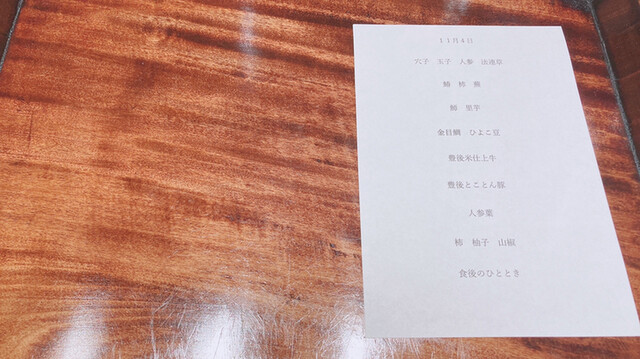 11月4日
穴子 玉子 人参 法蓮草
柿
里芋
金目鯛 ひよこ豆
豊後米仕上牛
豊後とことん豚
人参葉
柿 柚子 山椒
食後のひととき